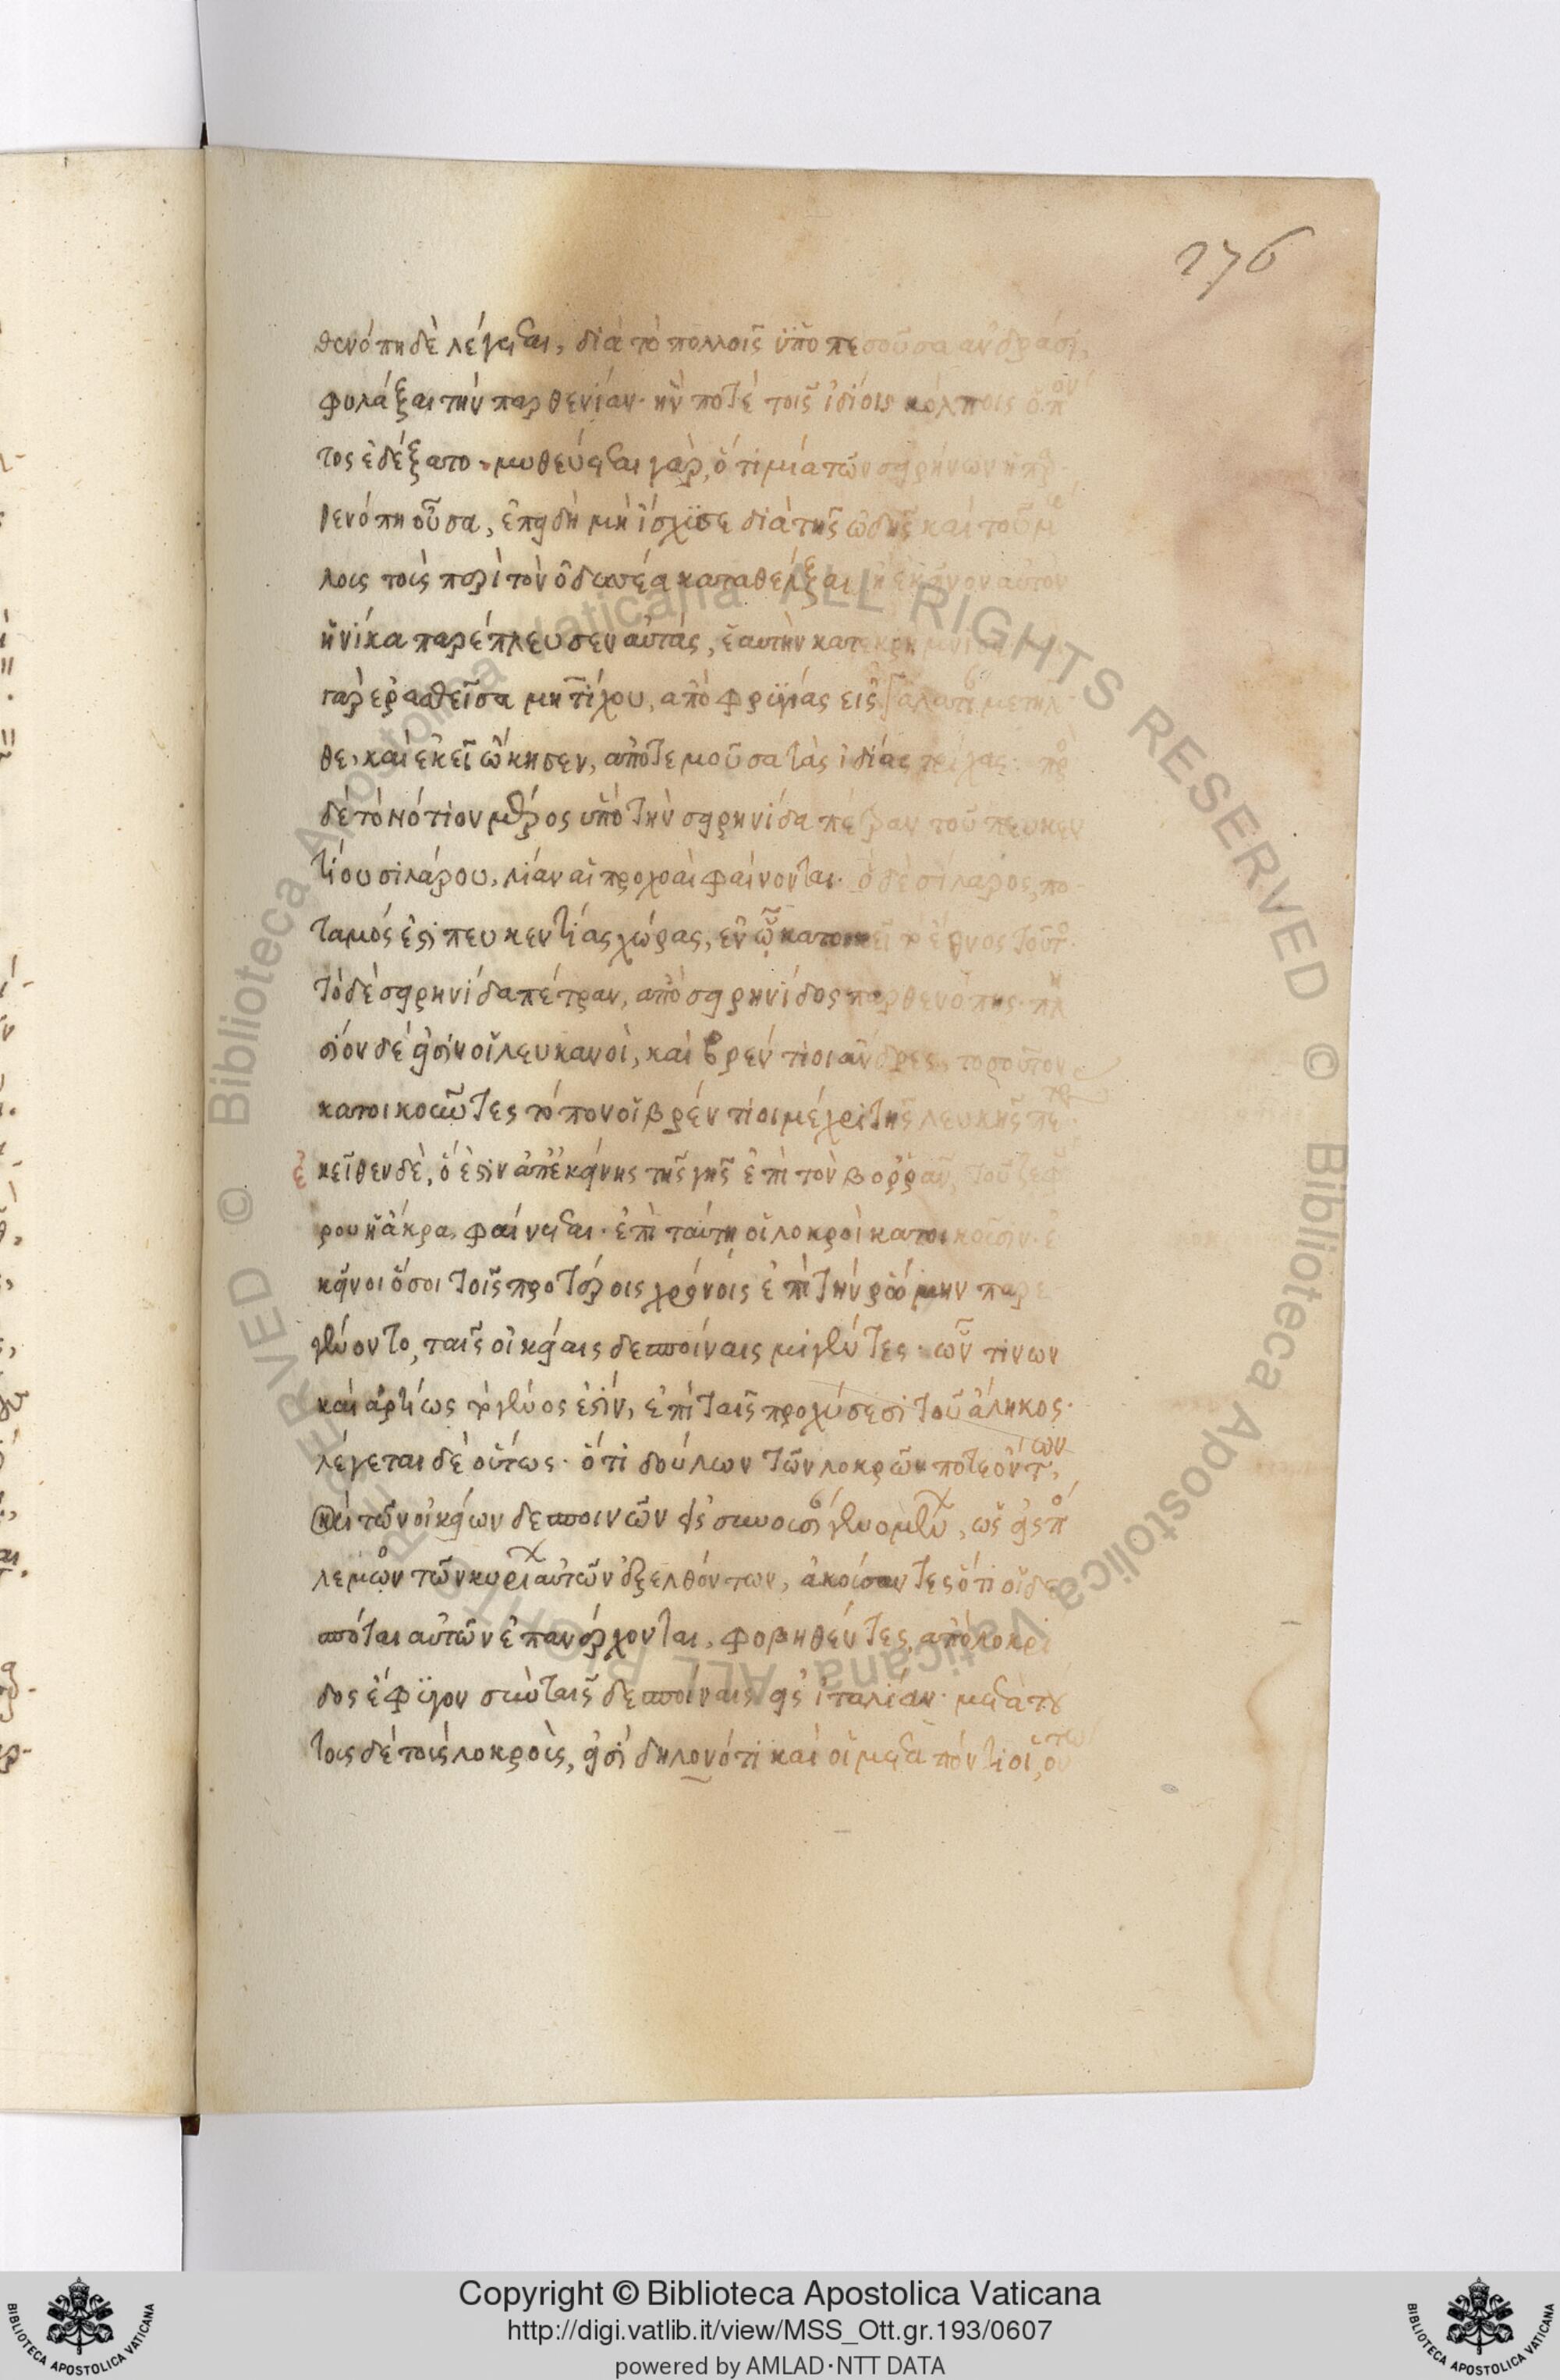 276
θενόπη δὲ λέγεται, διὰ τὸ πολλοῖς ὑποπεσοῦσα ἀνδράσι,
φυλάξαι τὴν παρθενίαν· ἥν ποτέ τοῖς ἰδίοις κόλποις ὁ πόν
τος ἐδέξατο· μυθεύεται γάρ, ὅτι μία τῶν σειρήνων ἡ παρ-
θενόπη οὖσα, ἐπειδὴ μὴ ἴσχυσε διὰ τῆς ᾠδῆς καὶ τοῦ μέ
λους τοὺς περὶ τὸν ὀδυσσέα καταθέλξαι ἢ ἐκεῖνον αὐτὸν
ἡνίκα παρέπλευσεν αὐτάς, ἑαυτὴν κατεκρήμνισε
γὰρ ἐρασθεῖσα μητίχου, ἀπὸ φρυγίας εἰς μετῆλ
θε, καὶ ἐκεῖ ᾤκησεν, ἀποτεμοῦσα τὰς ἰδίας τρίχας· πρὸ
δὲ τὸ νότιον μέρος ὑπὸ τὴν σειρηνίδα πέτραν τοῦ πευκεν
τίου σιλάρου, λίαν αἱ προχοαὶ φαίνονται· ὁ δὲ σίλαρος, πο-
ταμός ἐστι πευκεντίας χώρας, ἐν ᾧ κατοικεῖ τὸ ἔθνος τοῦτο·
τὸ δὲ σειρηνίδα πέτραν, ἀπὸ σειρηνίδος παρθενόπης· πλη
σίον δέ εἰσιν οἱ λευκανοὶ, καὶ βρέντιοι ἄνδρες, τοσοῦτον
κατοικοῦντες τόπον οἱ βρέντιοι μέχρι τῆς λευκῆς πέτρα
ἐκεῖθεν δὲ, ὅ ἐστιν ἀπ' ἐκείνης τῆς γῆς ἐπὶ τὸν βορρᾶν, τοῦ ζεφύ
ρου ἡ ἄκρα φαίνεται· ἐπὶ ταύτῃ οἱ λοκροὶ κατοικοῦσιν· ἐ
κεῖνοι ὅσοι τοῖς προτέροις χρόνοις ἐπὶ τὴν ῥώμην παρε
γένοντο, ταῖς οἰκείαις δεσποίναις μιγέντες· ὧν τινων
καὶ ἀρτίως τὸ γένος ἐστίν, ἐπὶ ταῖς προχύσεσι τοῦ ἄληκος·
λέγεται δὲ οὕτως· ὅτι δούλων τῶν λοκρῶν ποτε ὄντων,
καὶ τῶν οἰκείων δεσποινῶν εἰς συνουσίαν γενομένων, ὡς εἰς πό
λεμον τῶν κυρίων αὐτῶν ἐξελθόντων, ἀκούσαντες ὅτι οἱ δε
σπόται αὐτῶν ἐπανέρχονται, φοβηθέντες, ἀπὸ λοκρί
δος ἔφυγον σὺν ταῖς δεσποίναις εἰς ἰταλίαν· μετὰ τού
τοις δὲ τοὺς λοκροὺς, εἰσὶ δηλονότι καὶ οἱ μεταπόντιοι, οὕτω
Copyright © Biblioteca Apostolica Vaticana
http://digi.vatlib.it/view/MSS_Ott.gr.193/0607
powered by AMLAD·NTT DATA